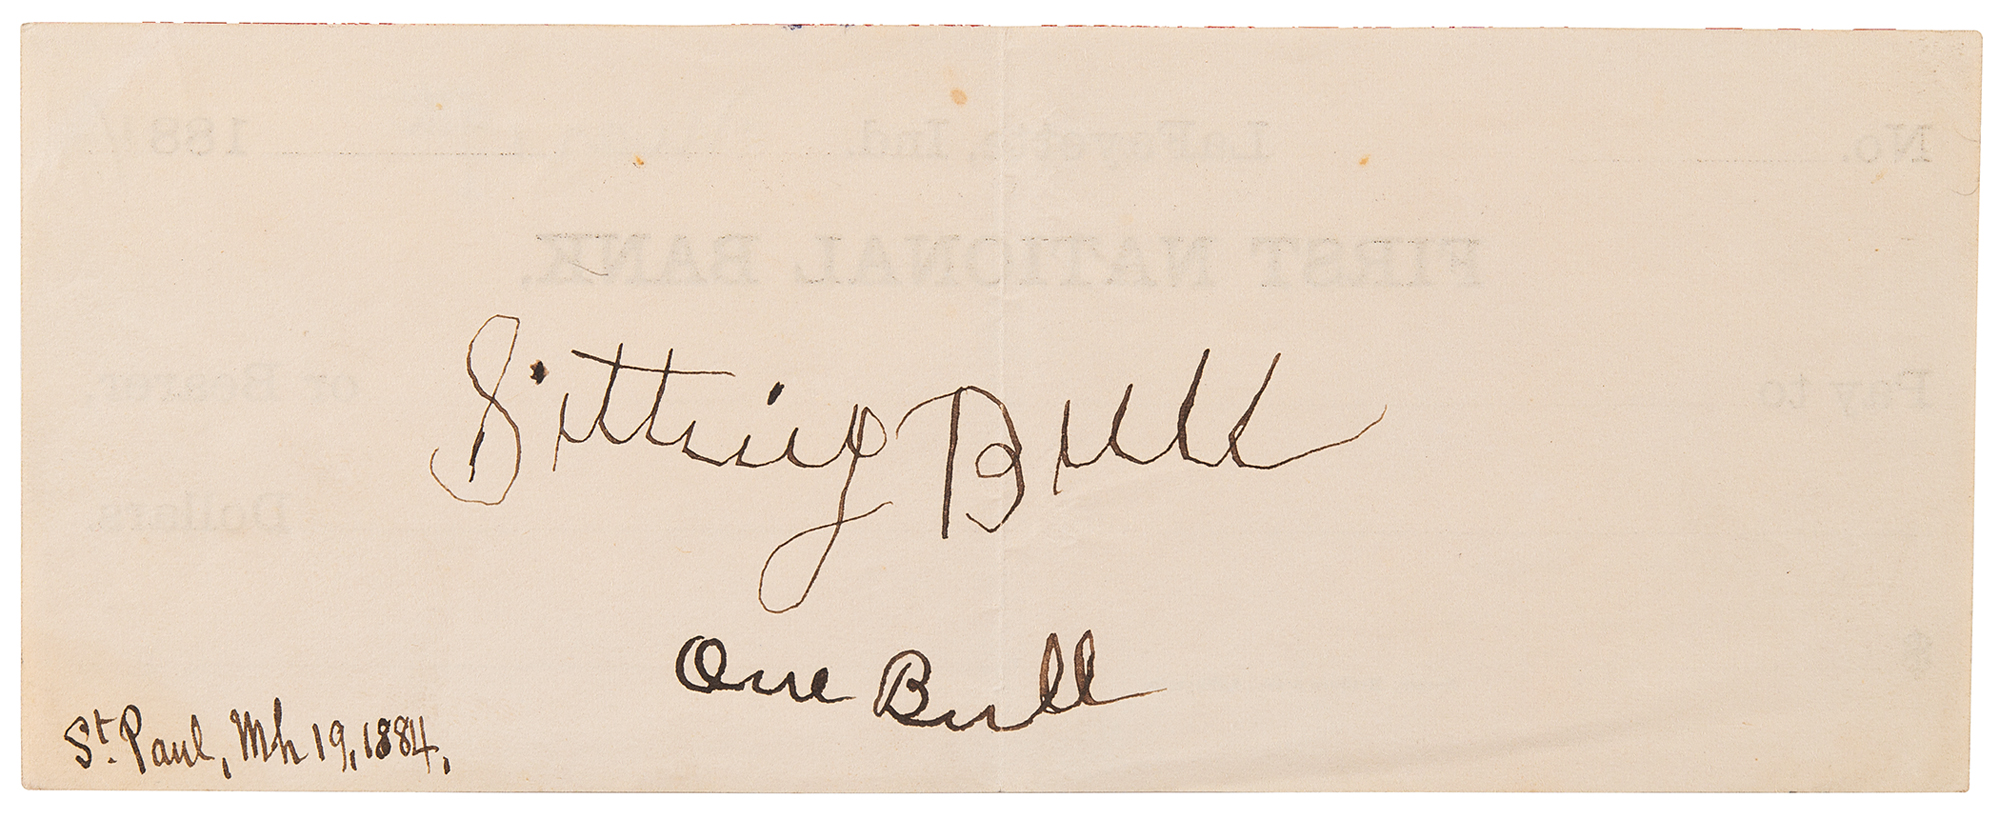 No. LaFayette, Ind. 188
FIRST NATIONAL BANK.
Pay to or Bearer.
Dollars
$
Sitting Bull
One Bull
St. Paul, Mh 19, 1884,